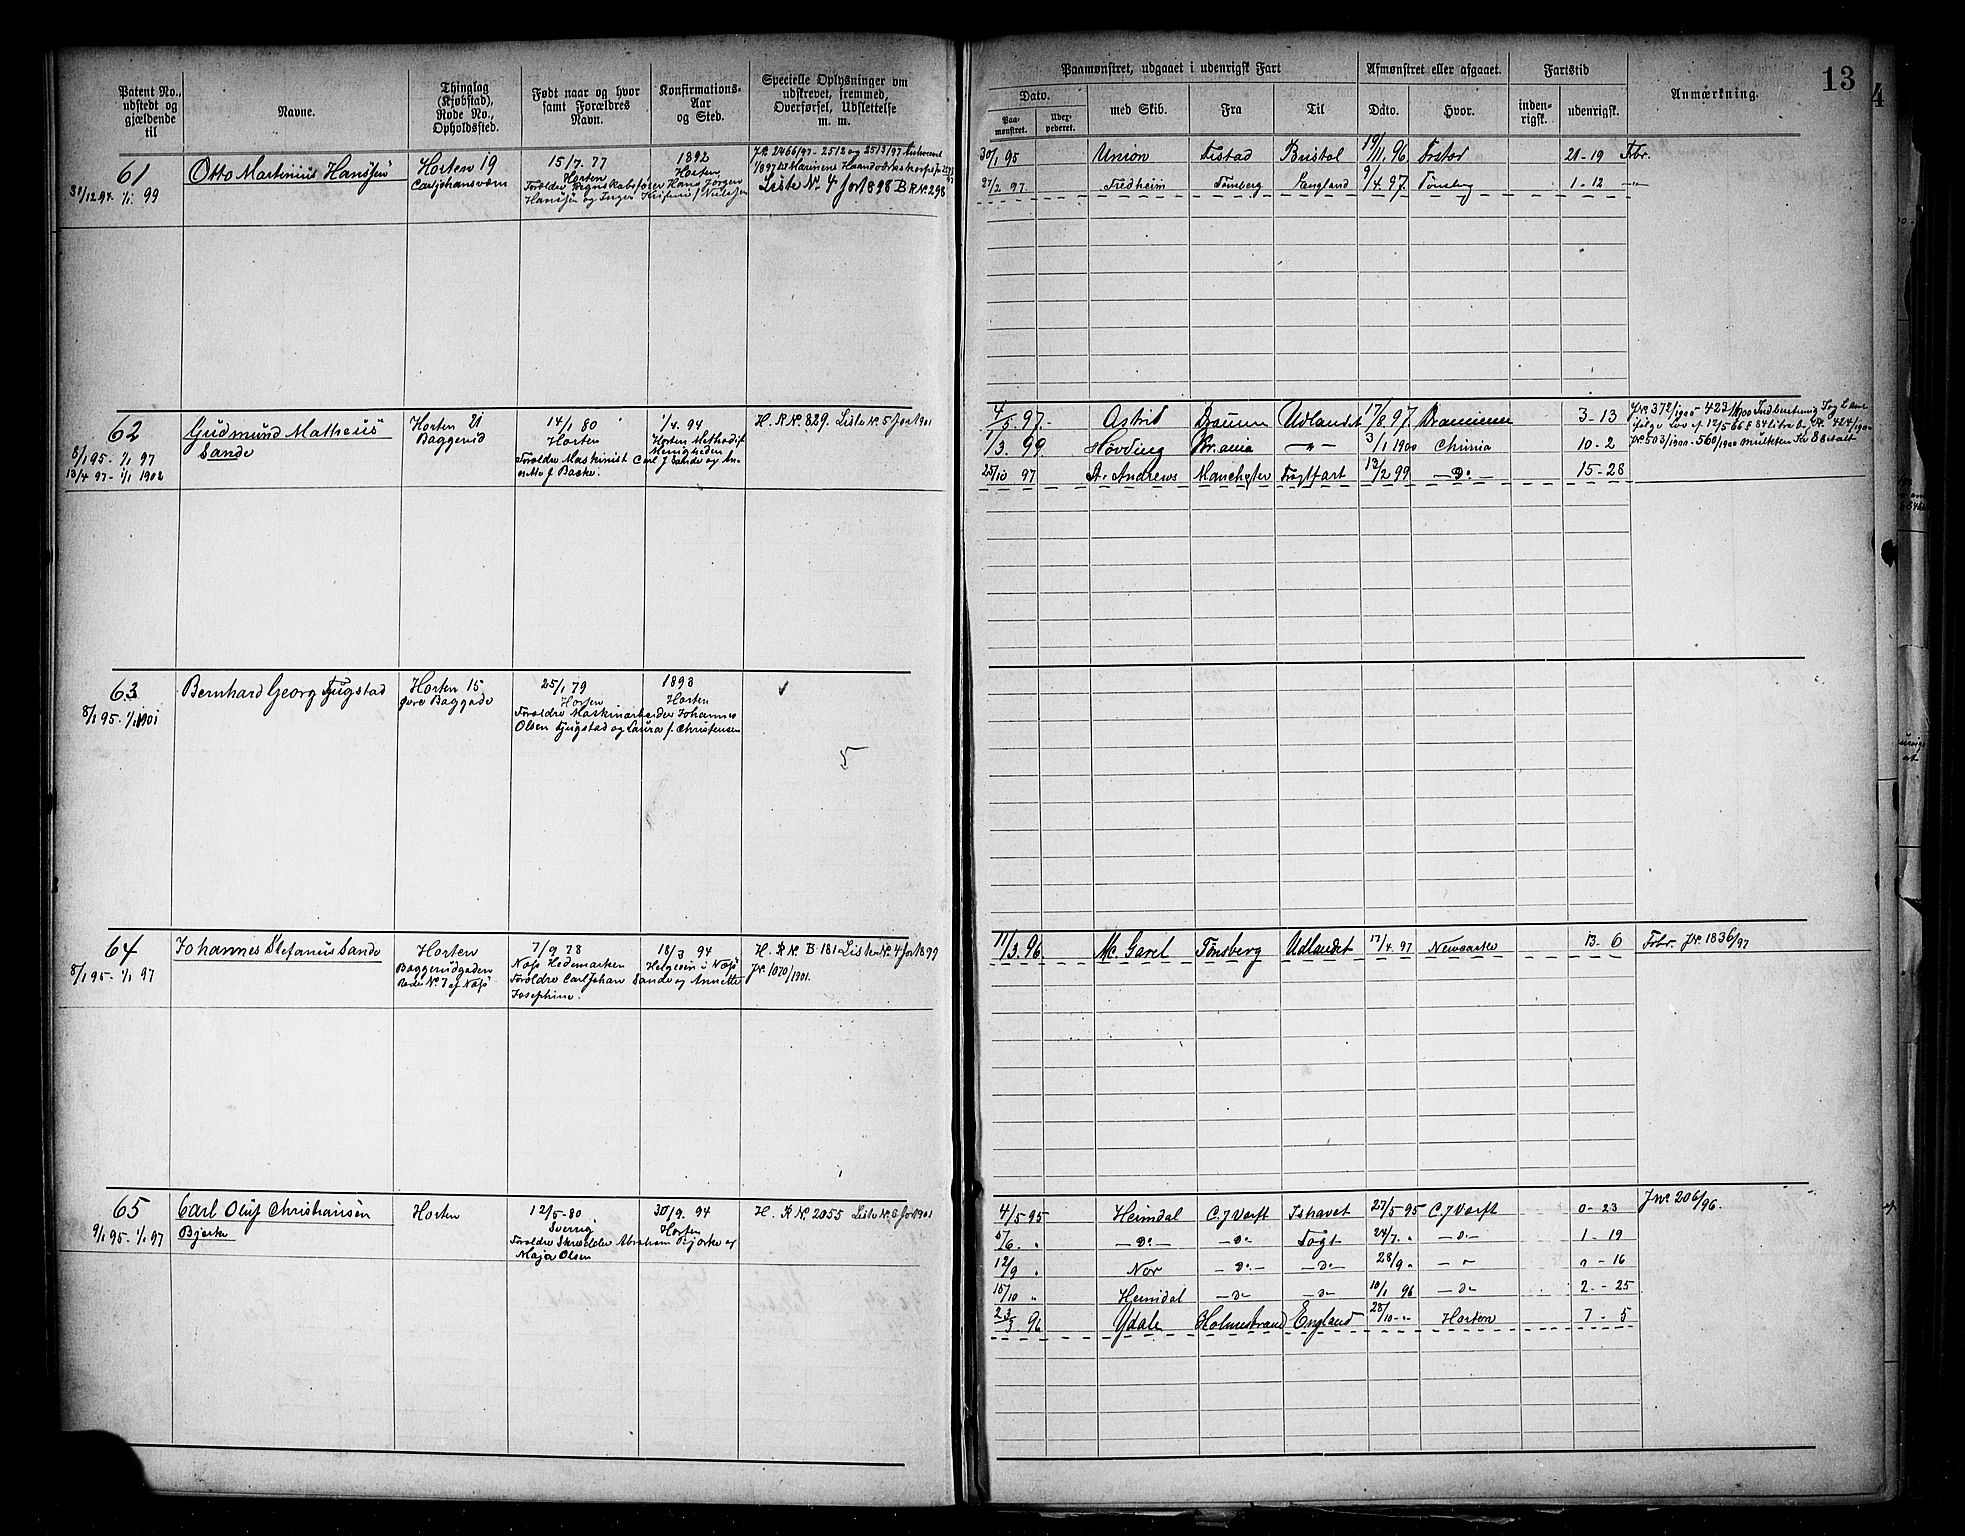 Patent No., udstedt og gjældende til
Navne.
Thinglag (Kjøbstad), Rode No., Opholdssted.
Født naar og hvor samt Forældres Navn.
Konfirmations-Aar og Sted.
Specielle Oplysninger om udskrevet, fremmed, Overførsel, Udslettelse m. m.
Paamønstret, udgaaet i udenrigsk Fart
Afmønstret eller afgaaet.
Fartstid
Anmærkning.
13
Dato.
Paa-mønstret.
med Skib.
Fra
Til
Dato.
Hvor.
inden-rigsk.
udenrigsk.
61
31/12 94. 1/1 99
Otto Martinius Hanssen
Horten 19
Carljohansværn
15/7. 77
Horten
1892
Horten
Liste No. 4 for 1898 B R No. 298
30/1 95 Union Bristol 19/11. 96 21-19 Frbr.
27/2 97 Fredheim Tønsberg England 9/4. 97. Tønsberg 1-12 -"-
62
8/1 95 - 1/1 97
13/4 97 - 1/1 1902
Gudmund Matheus
Sande
Horten 21
Baggerød
14/1 80
Horten
Forældre Maskinist Carl J Sande og An-
1/4. 94
Horten Methodist
Menigheden
H. R No. 829. Liste No. 5 for 1901
4/5. 97. Astrid Udlandet 17/8 97. 3-13
1/3. 99 Høvding -"- 3/1 1900 10-2
25/10 97 St. Andrews Manchester Fragtfart 13/2 99 -Do- 15-28
63
8/1 95 - 1/1 1901
Bernhard Georg Fjugstad
Horten 15
øvre Baggade
25/1 79
Horten
1893
Horten
Forældre Maskinarbeider Johannes
Olsen Fjugstad og Laura f. Christensen
5
64
8/1 95 - 1/1 97
Johannes Stefanius Sande
Horten
Baggerødgaden
Rode No. 7 af Næs
7/9 78
Næs Hedemarken
18/3 94
Helgeøen i Næs
Forældre Carl Johan Sande og Annette
Josephine.
H. R No. B 181 Liste No. 4 for 1899
J No. 1070/1901.
11/3. 96 Mc. Garel Tønsberg Udlandet 17/4. 97 13-6 Frbr. J No. 1836/97
65
9/1 95 - 1/1 97
Carl Oluf Christiansen
Bjerke
Horten
12/5-80
Sverrig
30/9. 94
Horten
Forældre Skrædder Abraham Bjerke og
Maja Olsen
H. R No. 2055 Liste No. 6 for 1901
4/5-95 Heimdal C. J Værft Ishavet 27/5 95 C. J Værft 0-23 J No. 206/96.
5/6. " -Do- -Do- Togt 24/7. " -Do- 1-19
12/9 " Nor -Do- -Do- 28/9 " -"- 0-16
15/10 " Heimdal -Do- -Do- 10/1 96 -Do- 2-25
23/3. 96 Ydale Holmestrand England 28/10 -"- Horten 7-5